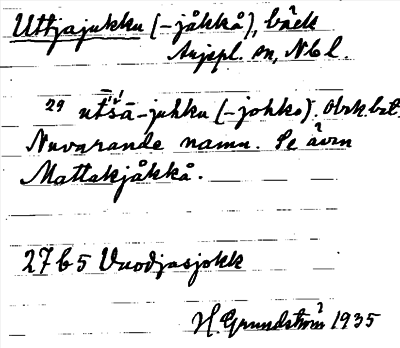 Uttjajukku (-jåkkå), bäck
Arjepl. sn, Nbl.
29 utšā-juhku (-johko). Obek. bet.
Nuvarande namn. Se även
Mattakjåkkå.
27 b 5 Vuodjasjokk
H. Grundström 1935